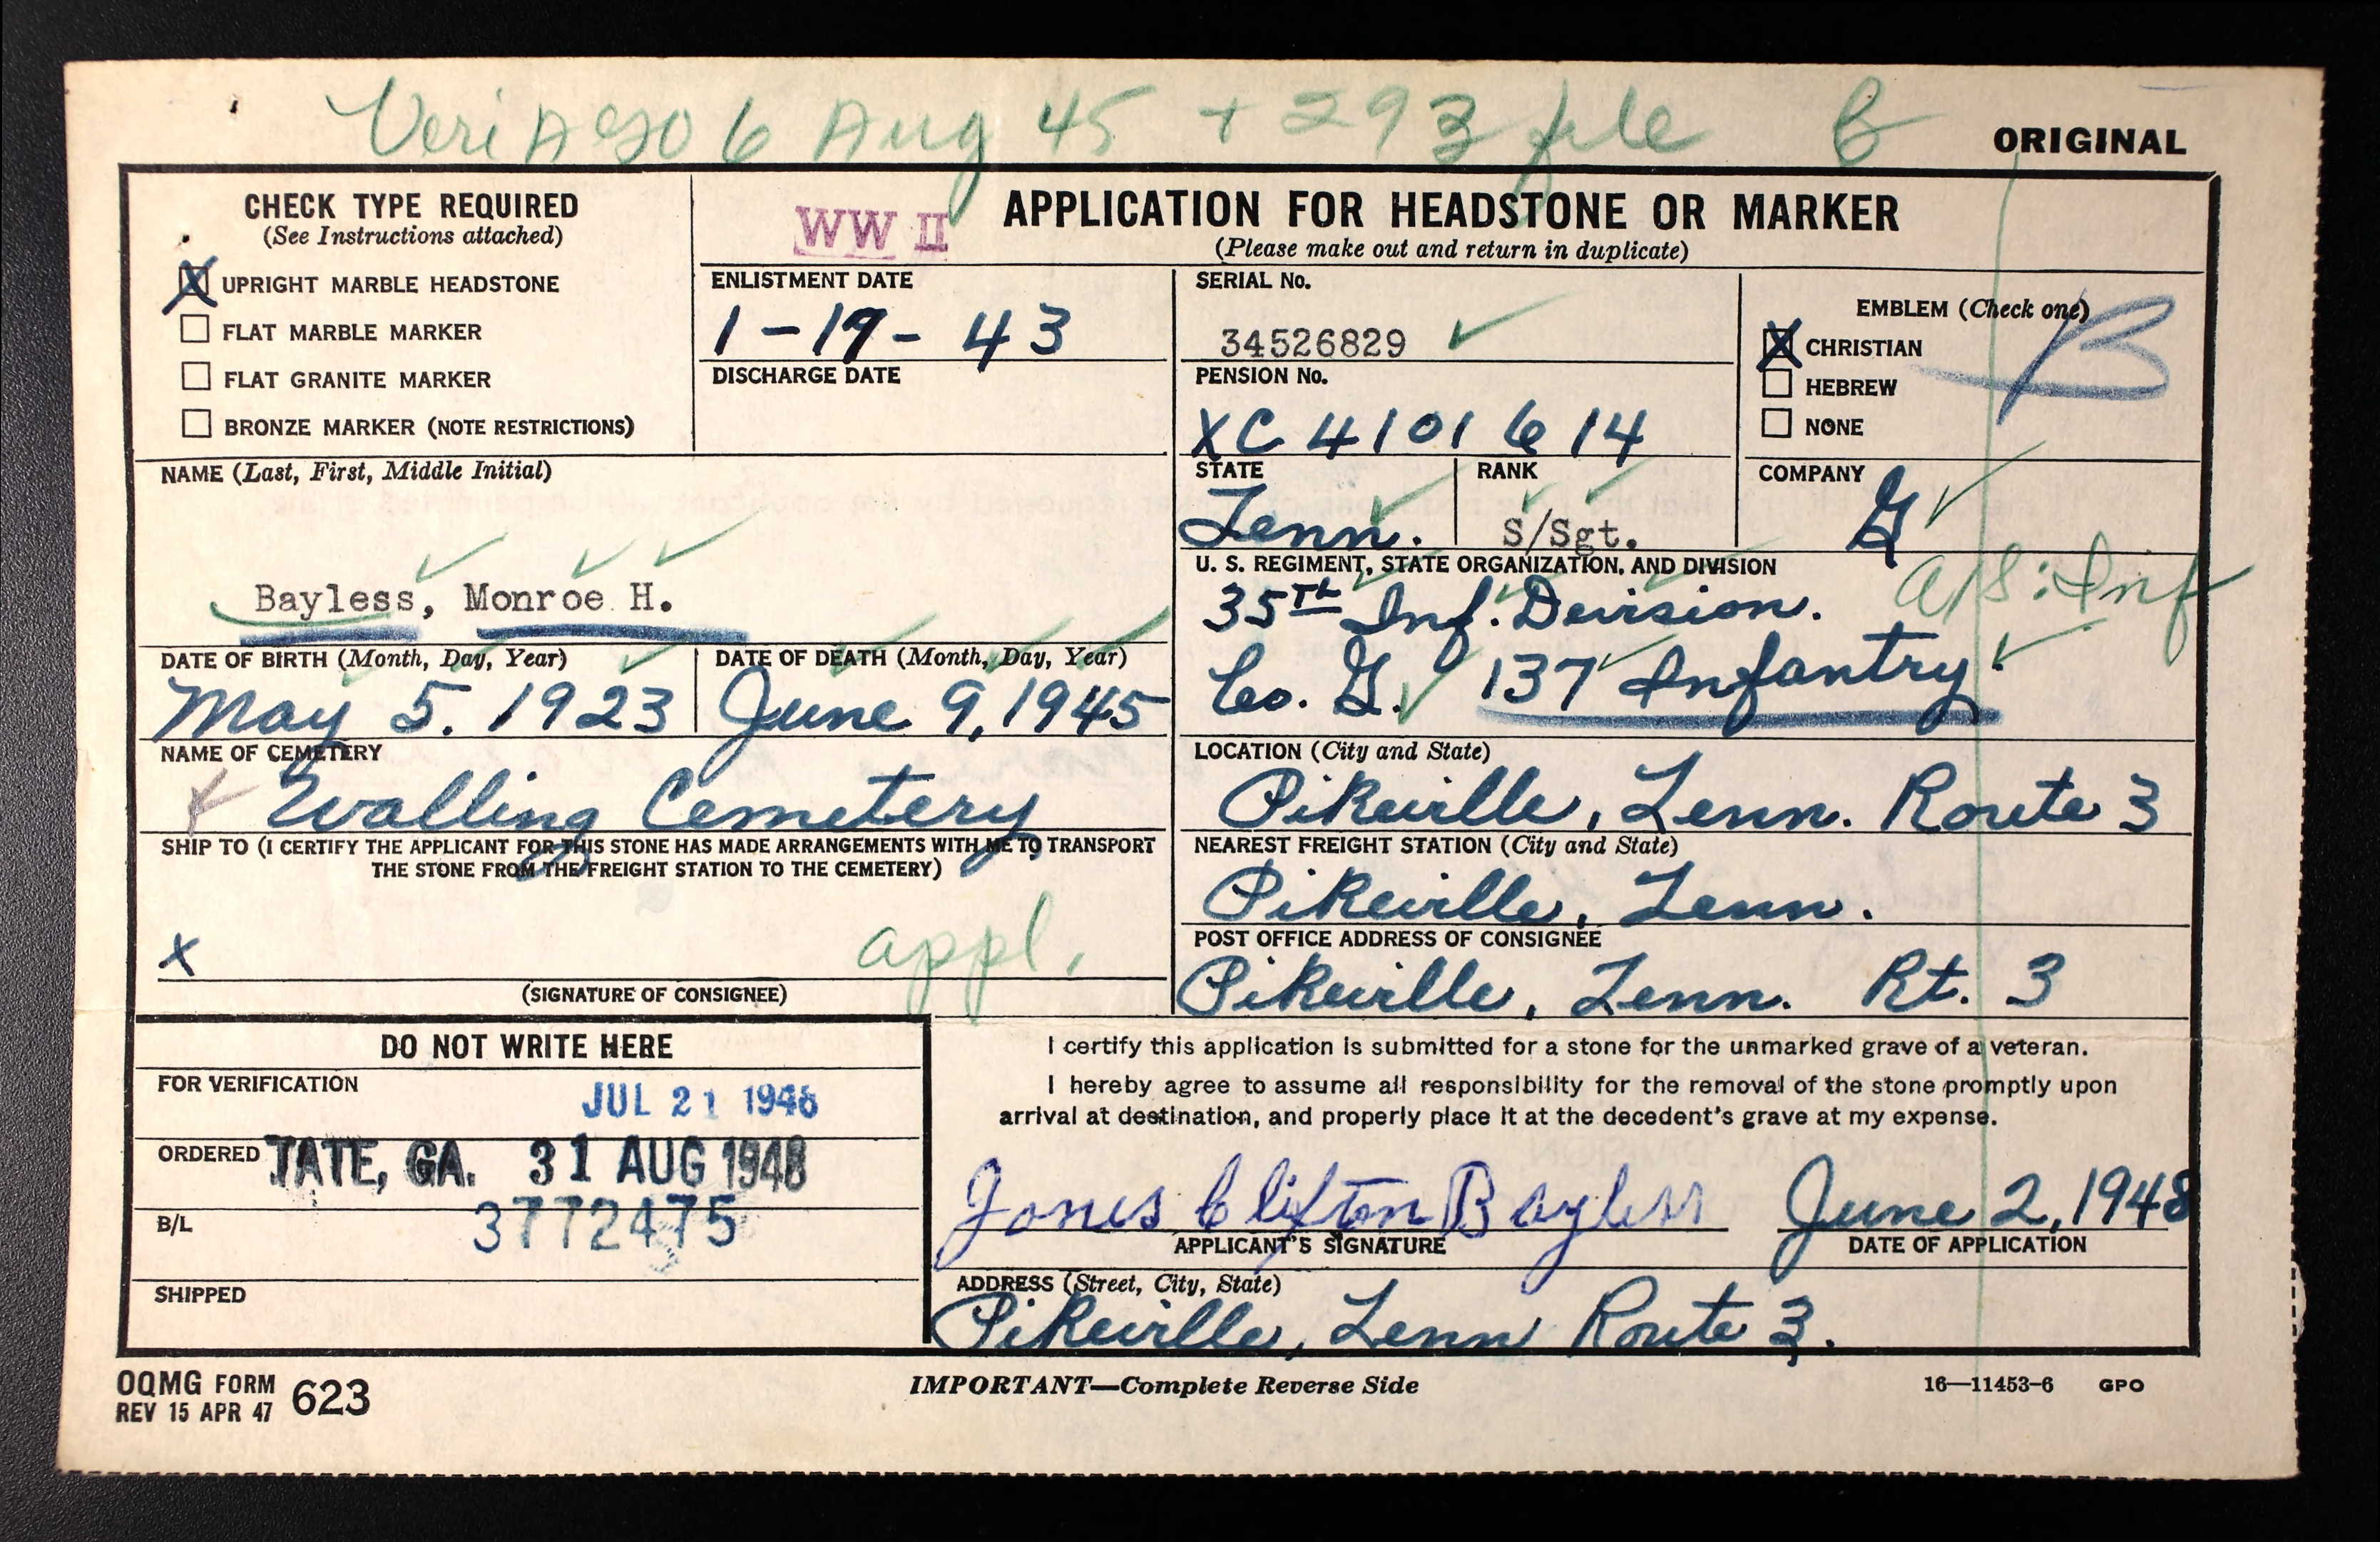 Veri AGO 6 Aug 45 + 293 file B
ORIGINAL
CHECK TYPE REQUIRED
(See Instructions attached)
X UPRIGHT MARBLE HEADSTONE
FLAT MARBLE MARKER
FLAT GRANITE MARKER
BRONZE MARKER (NOTE RESTRICTIONS)
WW II
APPLICATION FOR HEADSTONE OR MARKER
(Please make out and return in duplicate)
ENLISTMENT DATE
1-19-43
DISCHARGE DATE
SERIAL No.
34526829
PENSION No.
XC 4101614
EMBLEM (Check one)
X CHRISTIAN
HEBREW
NONE
B
NAME (Last, First, Middle Initial)
Bayless, Monroe H.
STATE
Tenn.
RANK
S/Sgt.
COMPANY
G
U. S. REGIMENT, STATE ORGANIZATION, AND DIVISION
35th Inf. Deivision.
A/S: Inf
Co. G. 137 Infantry.
DATE OF BIRTH (Month, Day, Year)
May 5. 1923
DATE OF DEATH (Month, Day, Year)
June 9, 1945
NAME OF CEMETERY
Walling Cemetery
LOCATION (City and State)
Pikeville, Tenn. Route 3
SHIP TO (I CERTIFY THE APPLICANT FOR THIS STONE HAS MADE ARRANGEMENTS WITH ME TO TRANSPORT
THE STONE FROM THE FREIGHT STATION TO THE CEMETERY)
X appl.
(SIGNATURE OF CONSIGNEE)
NEAREST FREIGHT STATION (City and State)
Pikeville, Tenn.
POST OFFICE ADDRESS OF CONSIGNEE
Pikeville, Tenn. Rt. 3
DO NOT WRITE HERE
FOR VERIFICATION
JUL 21 1948
ORDERED TATE, GA. 31 AUG 1948
B/L 3772475
SHIPPED
I certify this application is submitted for a stone for the unmarked grave of a veteran.
I hereby agree to assume all responsibility for the removal of the stone promptly upon
arrival at destination, and properly place it at the decedent's grave at my expense.
Jones Clifton Bayless June 2, 1948
APPLICANT'S SIGNATURE DATE OF APPLICATION
ADDRESS (Street, City, State)
Pikeville, Tenn Route 3.
OQMG FORM 623
REV 15 APR 47
IMPORTANT—Complete Reverse Side
16—11453-6 GPO